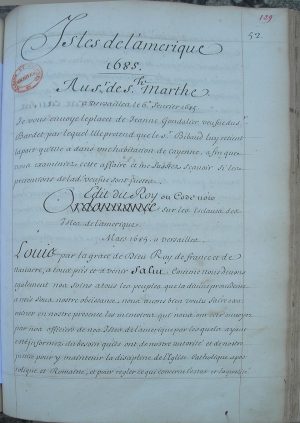 139
52
Isles de l'amerique
1685.
Au s.r de S.te Marthe
a Versailles le 6e feurier 1685
Je vous enuoye le placet de Jeanne Gandelier veufue du s.r
Bardet par lequel elle pretend que le s.r Bibaud luy retient
la part qu'elle a dans vne habitation de cayenne, afin que
vous examiniez cette affaire et me fassiez sçauoir si les
pretentions de lad. veufue sont justes.
Edit du Roy ou Code noir
Ordonnance sur les Esclaues des
Isles de l'amerique.
Mars 1685. a versailles
Louis par la grace de Dieu Roy de france et de
nauarre, a tous pns et a venir Salut. Comme nous deuons
egalement nos soins a tous les peuples que la diuine prouidence
a mis sous nostre obeissance, nous auons bien voulu faire exa-
miner en nostre presence les memoires qui nous ont esté enuoyez
par nos officiers de nos Isles de l'amerique par lesquels ayant
esté informez du besoin qu'ils ont de nostre autorité et de nostre
justice pour y maintenir la discipline de l'Eglise Catholique, apos-
tolique et Romaine, et pour regler ce qui concerne l'estat et la qualité